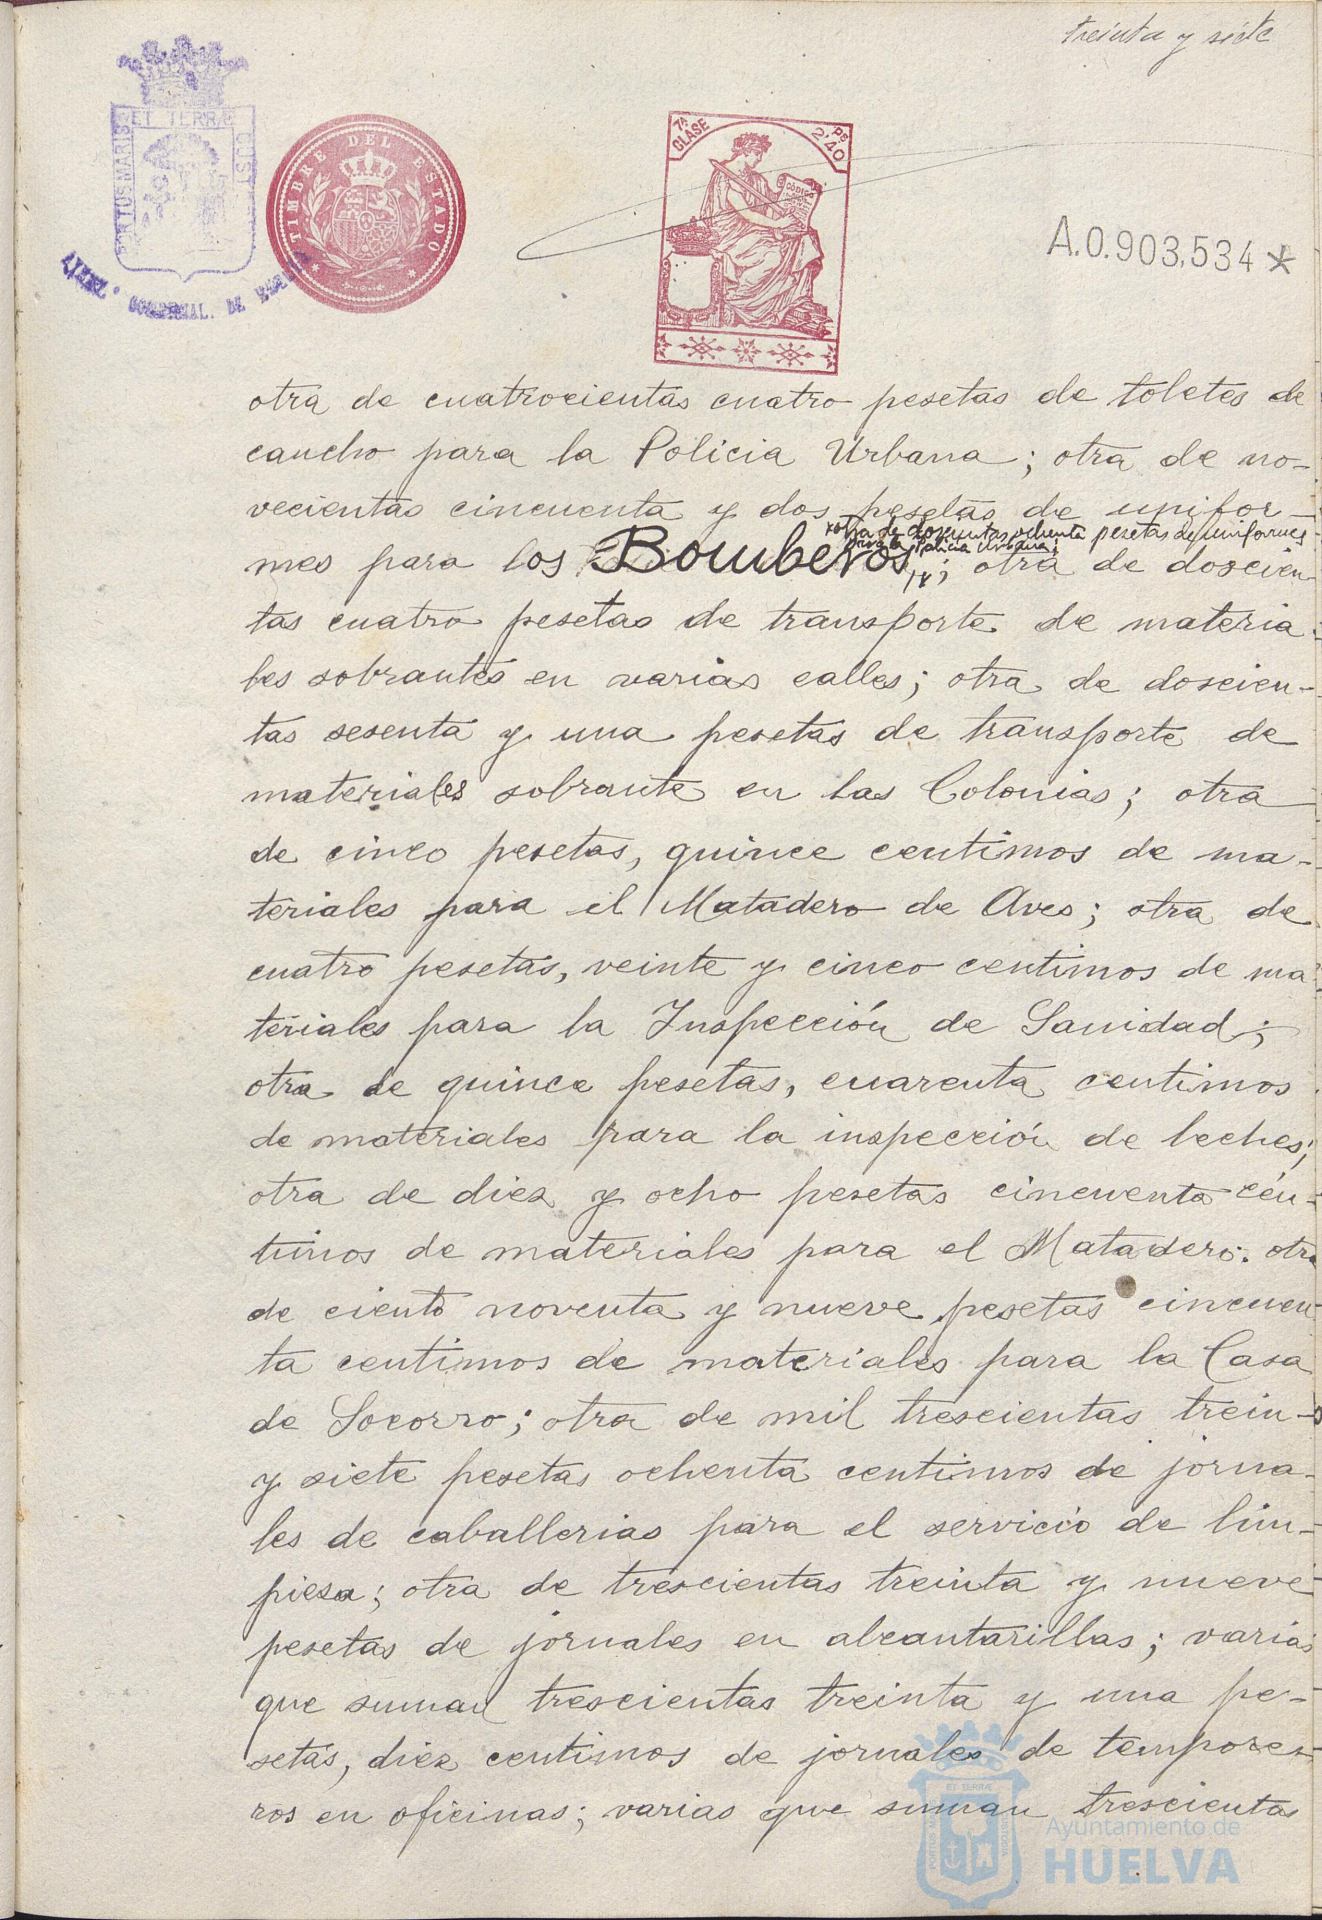 treinta y siete
ET TERRÆ
PORTUS MARIS
CUST
TIMBRE DEL ESTADO
7ª CLASE
2'40 PS
CÓDIGO
A.0.903,534 *
otra de cuatrocientas cuatro pesetas de toletes de
caucho para la Policia Urbana; otra de no-
vecientas cincuenta y dos pesetas de unifor-
x otra de doscientas ochenta pesetas de uniformes
para la Policia Urbana;
mes para los Bomberos /x/; otra de doscien
tas cuatro pesetas de transporte de materia-
les sobrantes en varias calles; otra de doscien-
tas sesenta y una pesetas de transporte de
materiales sobrante en las Colonias; otra
de cinco pesetas, quince centimos de ma-
teriales para el Matadero de Aves; otra de
cuatro pesetas, veinte y cinco centimos de ma
teriales para la Inspección de Sanidad;
otra de quince pesetas, cuarenta centimos
de materiales para la inspección de leches;
otra de diez y ocho pesetas cincuenta cén-
timos de materiales para el Matadero; otra
de ciento noventa y nueve pesetas cincuen-
ta centimos de materiales para la Casa
de Socorro; otra de mil trescientas trein-
y siete pesetas ochenta centimos de jorna-
les de caballerias para el servicio de lim-
pieza; otra de trescientas treinta y nueve
pesetas de jornales en alcantarillas; varias
que suman trescientas treinta y una pe-
setas, diez centimos de jornales de tempore-
ros en oficinas; varias que suman trescientas
Ayuntamiento de
HUELVA